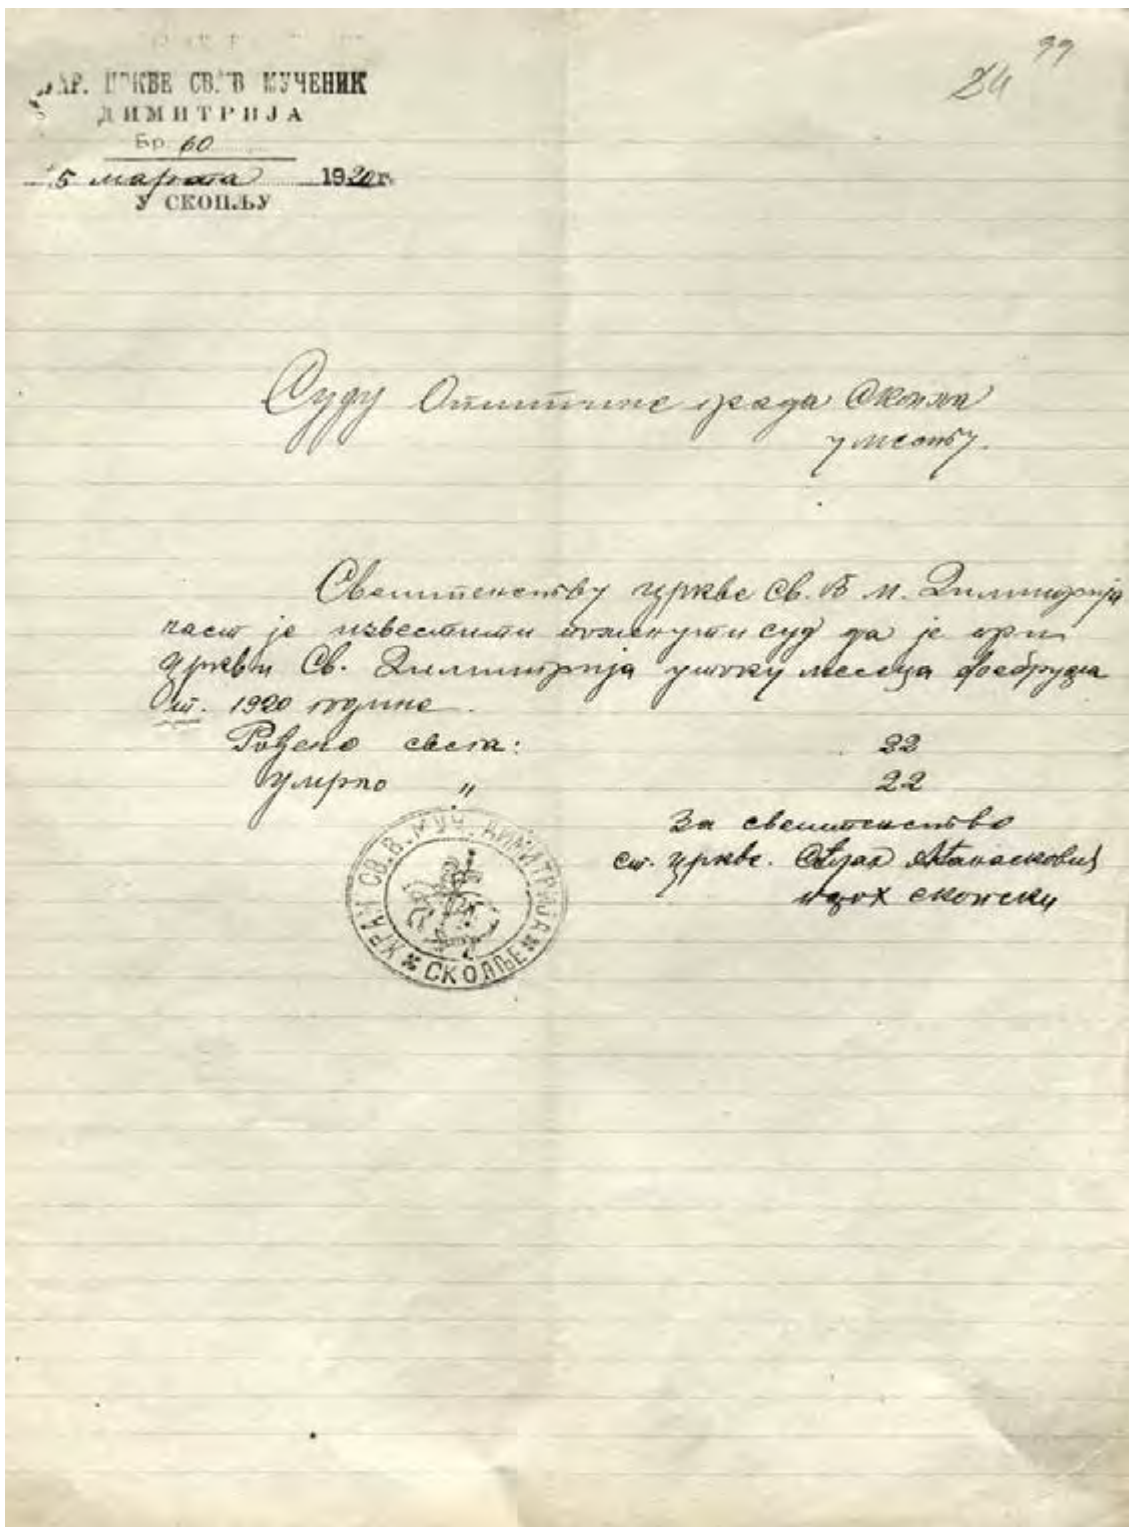 99
24
ПАР. ЦРКВЕ СВ. В МУЧЕНИК
ДИМИТРИЈА
Бр. 60
5 марта 1920 г.
У СКОПЉУ
Суду Општине града Скопља
у месту.
Свештенству цркве Св. В м. Димитрија
част је известити поменути суд да је при
цркви Св. Димитрија у току месеца фебруара
1920 године.
Рођено свега: 22
Умрло " 22
За свештенство
ст. цркве. Атанасковић
скопски
ХРАМ СВ. В. МУЧ. ДИМИТРИЈА
СКОПЉЕ